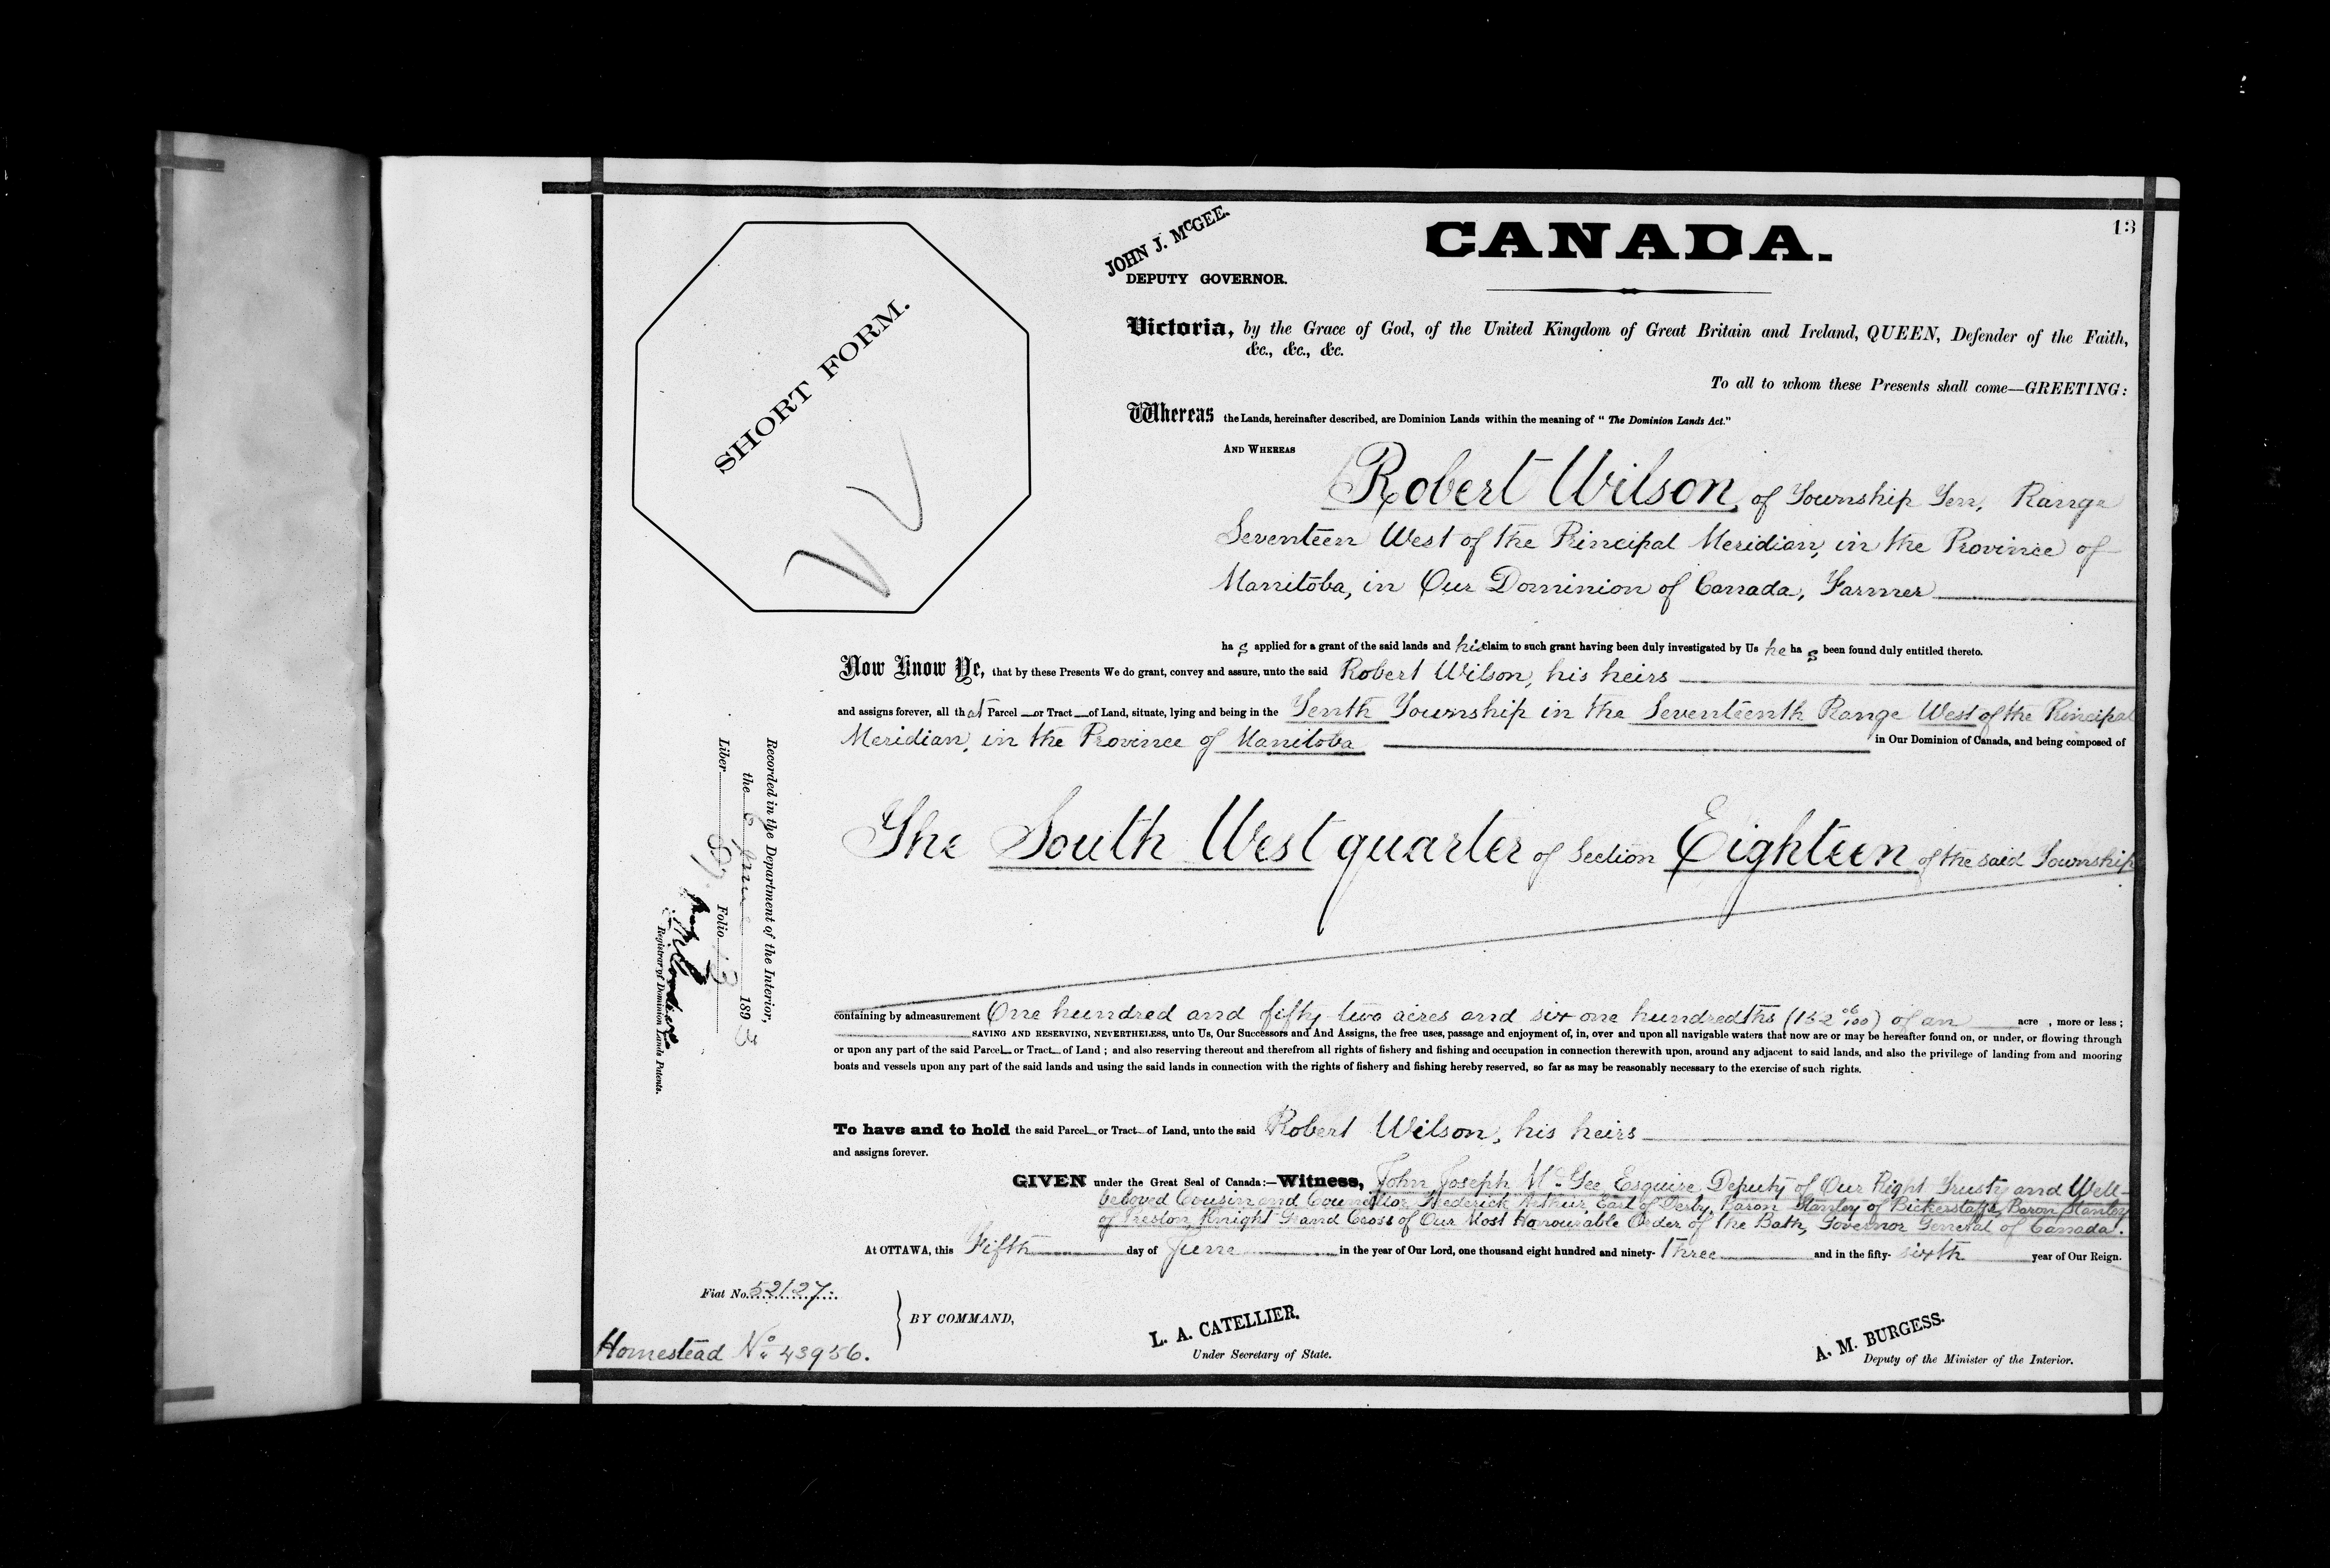 13
CANADA.
JOHN J. McGEE.
DEPUTY GOVERNOR.
SHORT FORM.
Victoria, by the Grace of God, of the United Kingdom of Great Britain and Ireland, QUEEN, Defender of the Faith,
&c., &c., &c.
To all to whom these Presents shall come—GREETING:
Whereas the Lands, hereinafter described, are Dominion Lands within the meaning of "The Dominion Lands Act."
AND WHEREAS
Robert Wilson, of Township Ten, Range
Seventeen West of the Principal Meridian, in the Province of
Manitoba, in Our Dominion of Canada, Farmer
ha s applied for a grant of the said lands and his claim to such grant having been duly investigated by Us he ha s been found duly entitled thereto.
Now Know Ye, that by these Presents We do grant, convey and assure, unto the said Robert Wilson, his heirs
and assigns forever, all that Parcel or Tract of Land, situate, lying and being in the Tenth Township in the Seventeenth Range West of the Principal
Meridian, in the Province of Manitoba in Our Dominion of Canada, and being composed of
The South West quarter of Section Eighteen of the said Township
containing by admeasurement One hundred and fifty-two acres and six one hundredths (152 06/100) of an acre , more or less ;
SAVING AND RESERVING, NEVERTHELESS, unto Us, Our Successors and And Assigns, the free uses, passage and enjoyment of, in, over and upon all navigable waters that now are or may be hereafter found on, or under, or flowing through
or upon any part of the said Parcel or Tract of Land ; and also reserving thereout and therefrom all rights of fishery and fishing and occupation in connection therewith upon, around any adjacent to said lands, and also the privilege of landing from and mooring
boats and vessels upon any part of the said lands and using the said lands in connection with the rights of fishery and fishing hereby reserved, so far as may be reasonably necessary to the exercise of such rights.
To have and to hold the said Parcel or Tract of Land, unto the said Robert Wilson, his heirs
and assigns forever.
GIVEN under the Great Seal of Canada:—Witness, John Joseph McGee Esquire, Deputy of Our Right Trusty and Well-
beloved Cousin and Councillor Frederick Arthur, Earl of Derby, Baron Stanley of Bickerstaffe, Baron Stanley
of Preston, Knight Grand Cross of Our Most Honourable Order of the Bath, Governor General of Canada.
At OTTAWA, this Fifth day of June in the year of Our Lord, one thousand eight hundred and ninety-three and in the fifty-sixth year of Our Reign.
Recorded in the Department of the Interior,
the 6 June 1893
Liber 87. Folio 13
Registrar of Dominion Lands Patents.
Fiat No. 52127.
Homestead No. 43956.
BY COMMAND,
L. A. CATELLIER.
Under Secretary of State.
A. M. BURGESS.
Deputy of the Minister of the Interior.